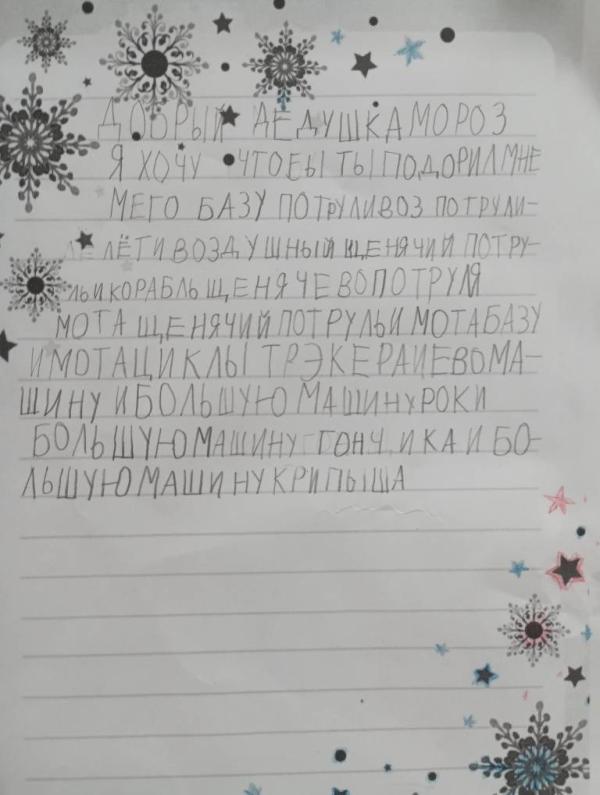 ДОБРЫЙ ДЕДУШКА МОРОЗ
Я ХОЧУ ЧТОБЫ ТЫ ПОДОРИЛ МНЕ
МЕГО БАЗУ ПОТРУЛИВОЗ ПОТРУЛИ-
ЛЁТ И ВОЗДУШНЫЙ ЩЕНЯЧИЙ ПОТРУ-
ЛЬ И КОРАБЛЬ ЩЕНЯЧЕВО ПОТРУЛЯ
МОТА ЩЕНЯЧИЙ ПОТРУЛЬ И МОТАБАЗУ
И МОТАЦИКЛЫ ТРЭКЕРА И ЕВО МА-
ШИНУ И БОЛЬШУЮ МАШИНУ РОКИ
БОЛЬШУЮ МАШИНУ ГОНЧИКА И БО-
ЛЬШУЮ МАШИНУ КРИПЫША